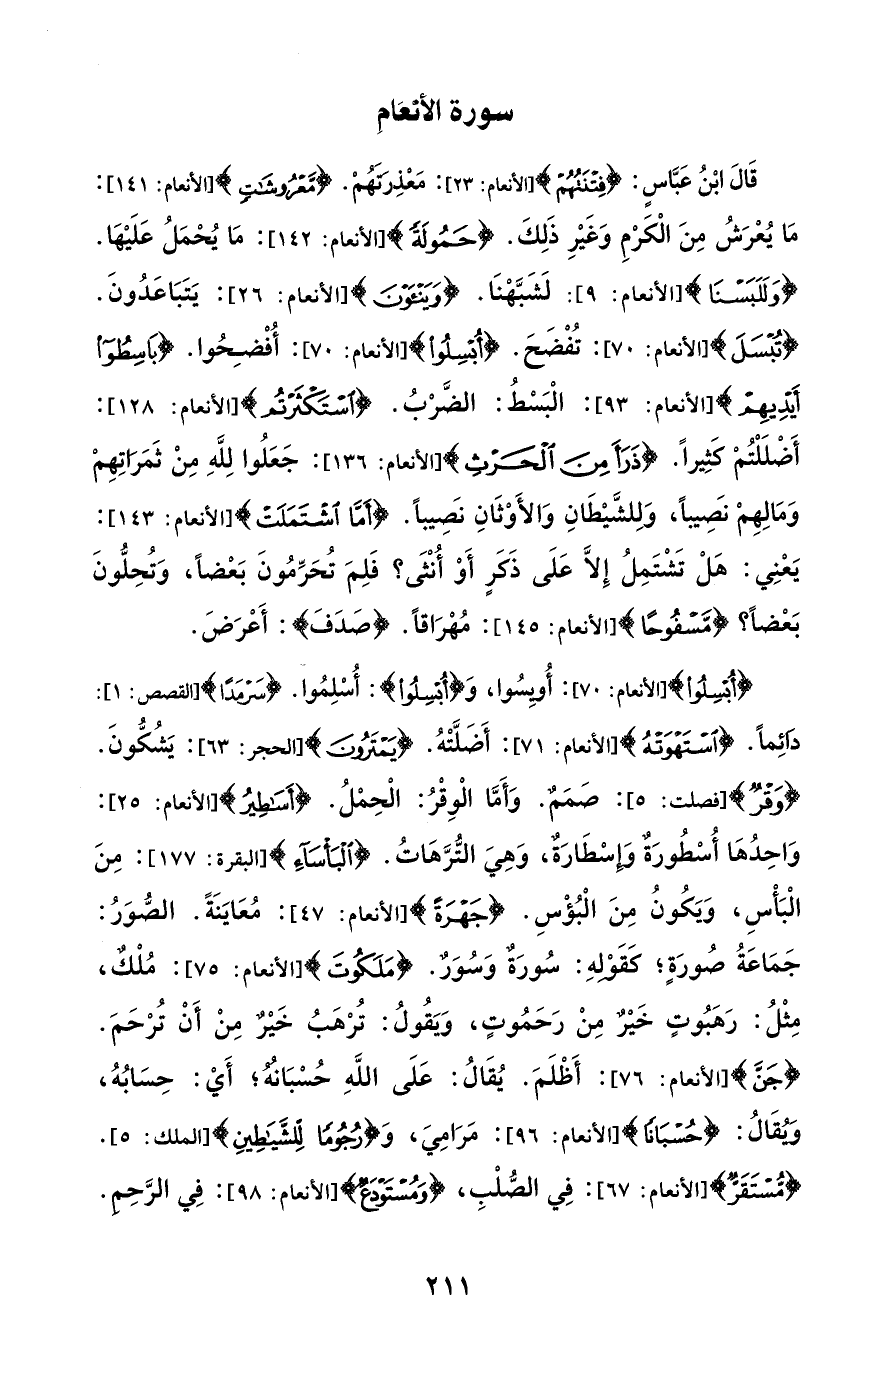 سورة الأنعَامِ
قَالَ ابْنُ عَبَّاسٍ: ﴿فِتْنَتُهُمْ﴾[الأنعام: ٢٣]: مَعْذِرَتَهُمْ. ﴿مَّعْرُوشَٰتٍ﴾[الأنعام: ١٤١]:
مَا يُعْرَشُ مِنَ الْكَرْمِ وَغَيْرِ ذَلِكَ. ﴿حَمُولَةً﴾[الأنعام: ١٤٢]: مَا يُحْمَلُ عَلَيْهَا.
﴿وَلَلَبَسْنَا﴾[الأنعام: ٩]: لَشَبَّهْنَا. ﴿وَيَنْـَٔوْنَ﴾[الأنعام: ٢٦]: يَتَبَاعَدُونَ.
﴿تُبْسَلَ﴾[الأنعام: ٧٠]: تُفْضَحَ. ﴿أُبْسِلُوا۟﴾[الأنعام: ٧٠]: أُفْضِحُوا. ﴿بَاسِطُوٓا۟
أَيْدِيهِمْ﴾[الأنعام: ٩٣]: الْبَسْطُ: الضَّرْبُ. ﴿ٱسْتَكْثَرْتُم﴾[الأنعام: ١٢٨]:
أَضْلَلْتُمْ كَثِيراً. ﴿ذَرَأَ مِنَ ٱلْحَرْثِ﴾[الأنعام: ١٣٦]: جَعَلُوا لِلَّهِ مِنْ ثَمَرَاتِهِمْ
وَمَالِهِمْ نَصِيباً، وَلِلشَّيْطَانِ وَالأَوْثَانِ نَصِيباً. ﴿أَمَّا ٱشْتَمَلَتْ﴾[الأنعام: ١٤٣]:
يَعْنِي: هَلْ تَشْتَمِلُ إِلاَّ عَلَى ذَكَرٍ أَوْ أُنْثَى؟ فَلِمَ تُحَرِّمُونَ بَعْضاً، وَتُحِلُّونَ
بَعْضاً؟ ﴿مَّسْفُوحًا﴾[الأنعام: ١٤٥]: مُهْرَاقاً. ﴿صَدَفَ﴾: أَعْرَضَ.
﴿أُبْسِلُوا۟﴾[الأنعام: ٧٠]: أُويِسُوا، وَ﴿أُبْسِلُوا۟﴾: أُسْلِمُوا. ﴿سَرْمَدًا﴾[القصص: ١]:
دَائِماً. ﴿ٱسْتَهْوَتْهُ﴾[الأنعام: ٧١]: أَضَلَّتْهُ. ﴿يَمْتَرُونَ﴾[الحجر: ٦٣]: يَشُكُّونَ.
﴿وَقْرٌ﴾[فصلت: ٥]: صَمَمٌ. وَأَمَّا الْوِقْرُ: الْحِمْلُ. ﴿أَسَٰطِيرُ﴾[الأنعام: ٢٥]:
وَاحِدُهَا أُسْطُورَةٌ وَإِسْطَارَةٌ، وَهِيَ التُّرَّهَاتُ. ﴿ٱلْبَأْسَآءِ﴾[البقرة: ١٧٧]: مِنَ
الْبَأْسِ، وَيَكُونُ مِنَ الْبُؤْسِ. ﴿جَهْرَةً﴾[الأنعام: ٤٧]: مُعَايَنَةً. الصُّوَرُ:
جَمَاعَةُ صُورَةٍ؛ كَقَوْلِهِ: سُورَةٌ وَسُوَرٌ. ﴿مَلَكُوتَ﴾[الأنعام: ٧٥]: مُلْكٌ،
مِثْلُ: رَهَبُوتٍ خَيْرٌ مِنْ رَحَمُوتٍ، وَيَقُولُ: تُرْهَبُ خَيْرٌ مِنْ أَنْ تُرْحَمَ.
﴿جَنَّ﴾[الأنعام: ٧٦]: أَظْلَمَ. يُقَالُ: عَلَى اللَّهِ حُسْبَانُهُ؛ أَيْ: حِسَابُهُ،
وَيُقَالُ: ﴿حُسْبَانًا﴾[الأنعام: ٩٦]: مَرَامِيَ، وَ﴿رُجُومًا لِّلشَّيَٰطِينِ﴾[الملك: ٥].
﴿مُّسْتَقَرٌّ﴾[الأنعام: ٦٧]: فِي الصُّلْبِ، ﴿وَمُسْتَوْدَعٌ﴾[الأنعام: ٩٨]: فِي الرَّحِمِ.
٢١١